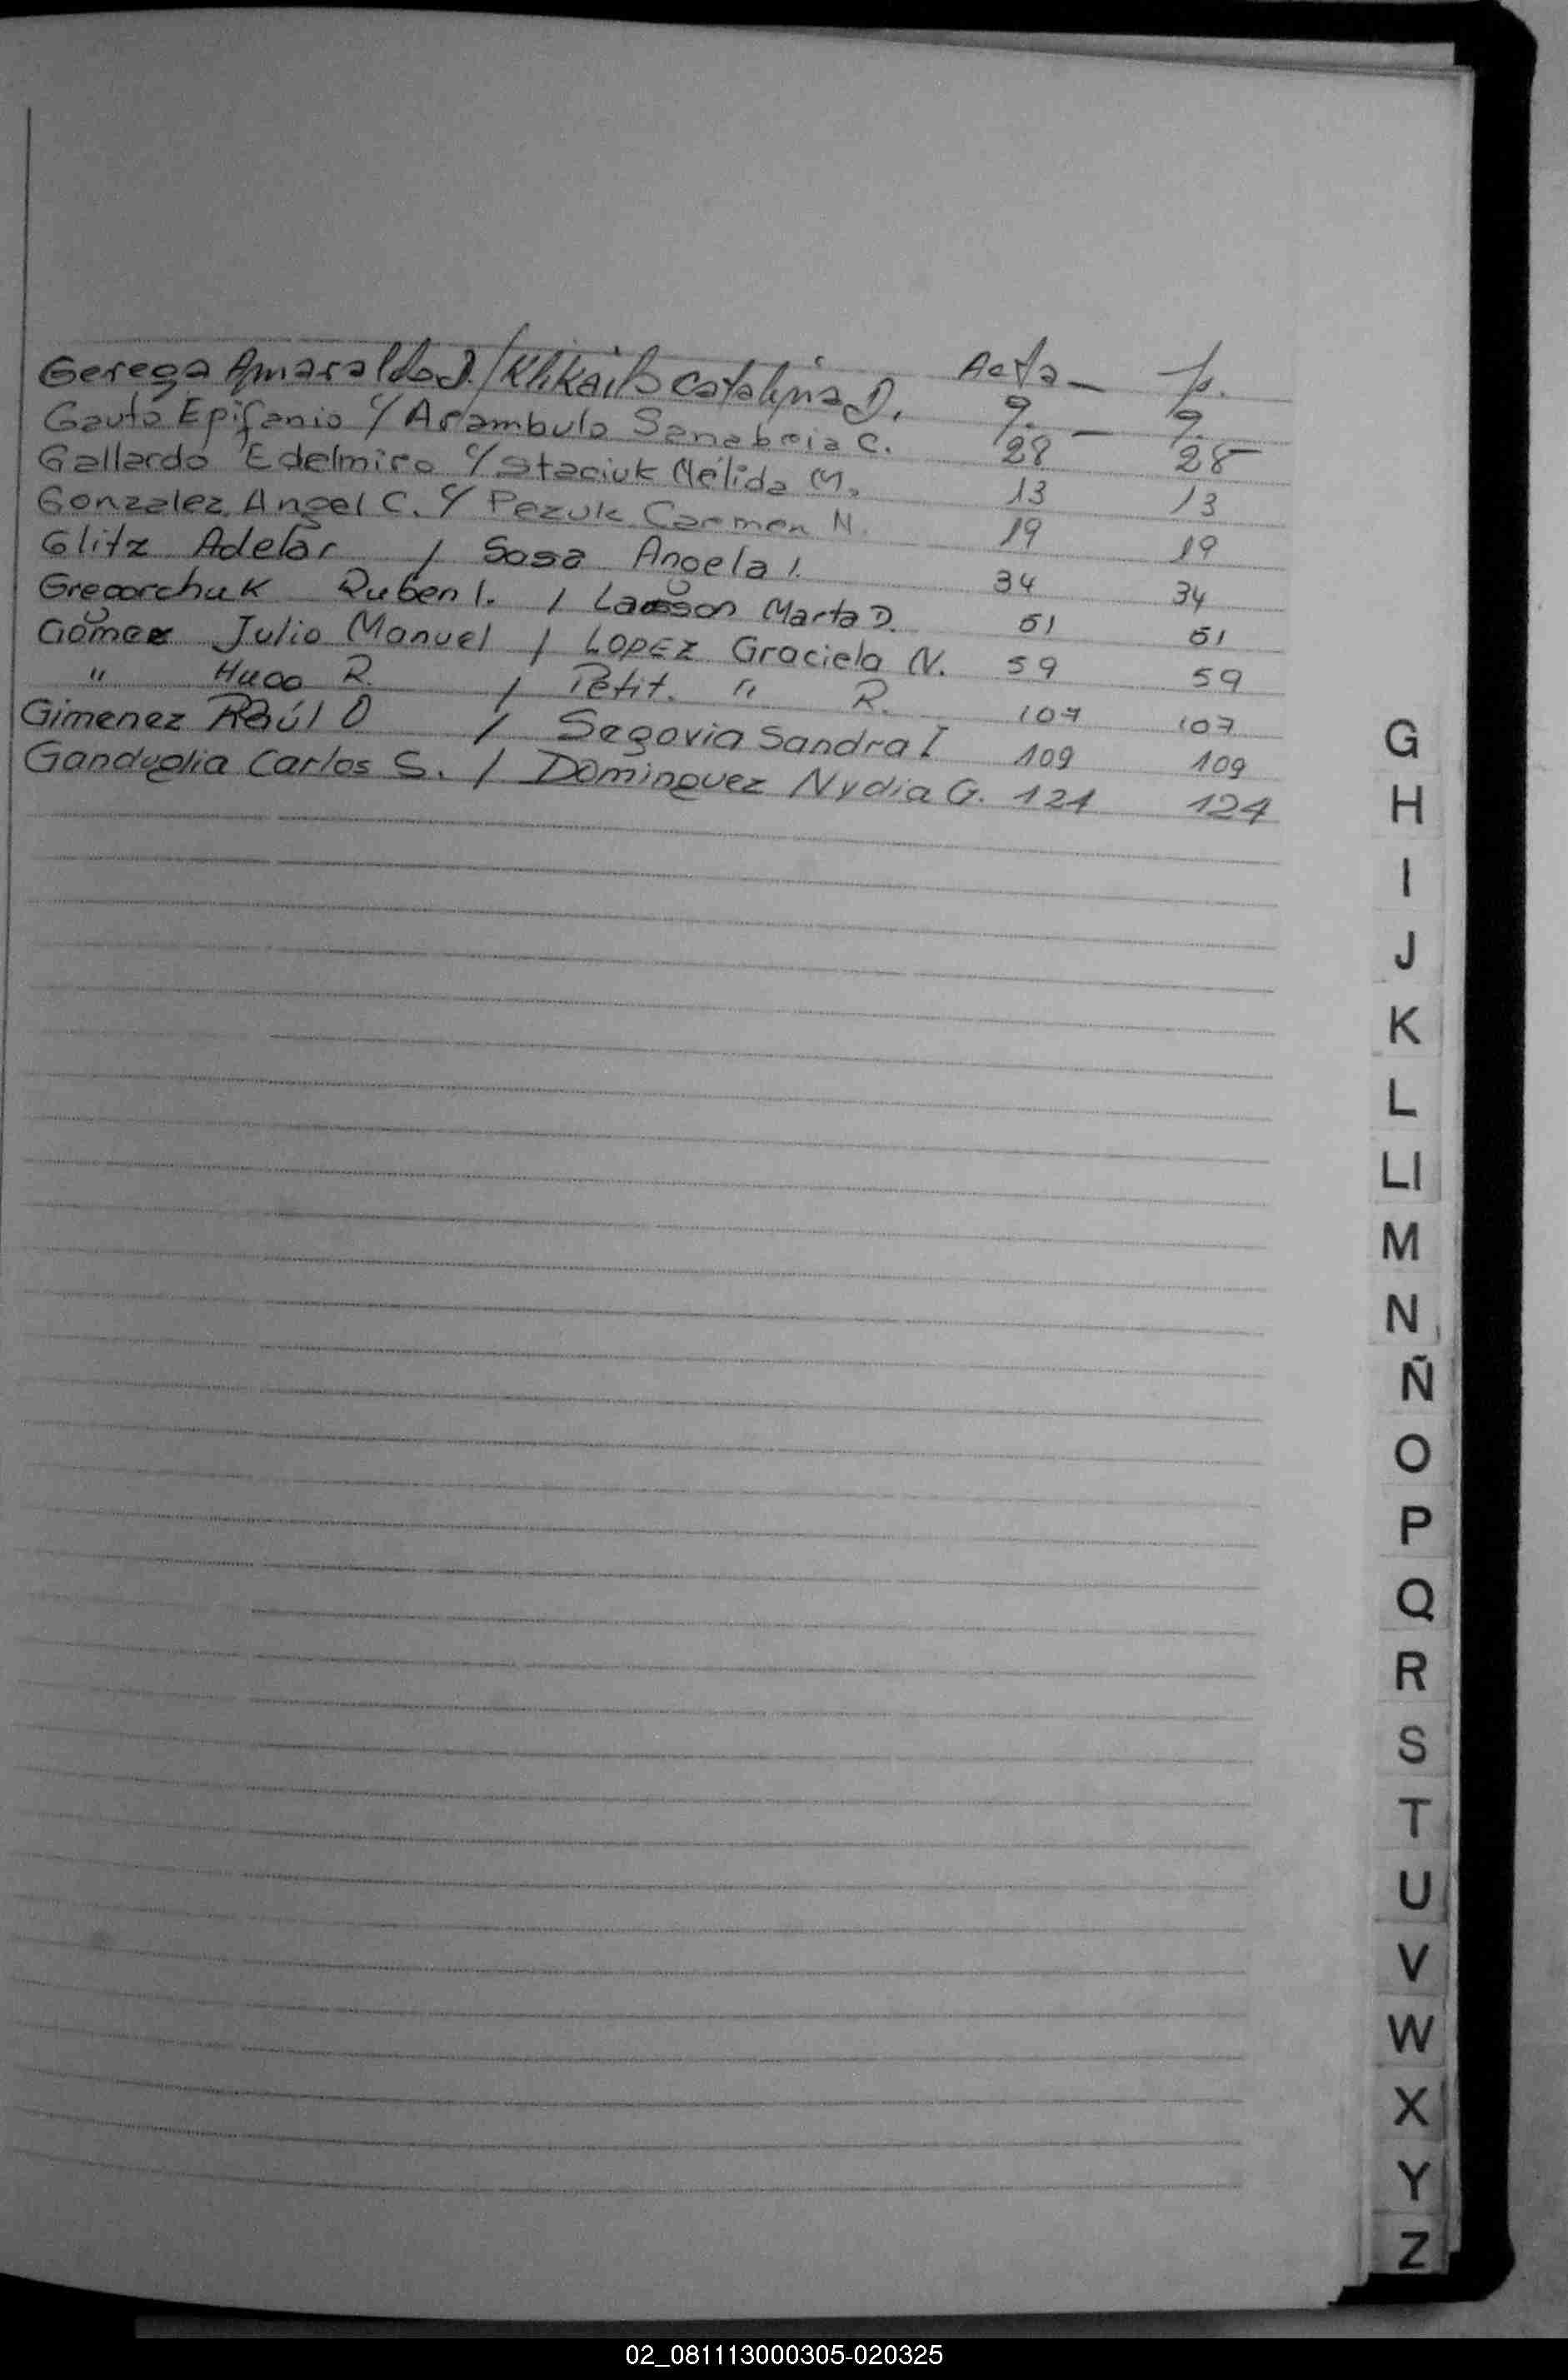 Acta - f.
Gerega Amaraldo D. / Klikailo Catalina D. 9. - 9.
Gauto Epifanio c/ Arambulo Sanabria C. 28 28
Gallardo Edelmiro c/ Staciuk Nélida M. 13 13
Gonzalez, Angel C. c/ Pezuk Carmen N. 19 19
Glitz Adelar / Sosa Angela I. 34 34
Gregorchuk Ruben I. / Larsson Marta D. 51 51
Gómez Julio Manuel / LOPEZ Graciela N. 59 59
" Hugo R. / Petit. " R. 107 107
Gimenez Raúl O / Segovia Sandra I 109 109
Ganduglia Carlos S. / Dominguez Nydia G. 121 124
G
H
I
J
K
L
Ll
M
N
Ñ
O
P
Q
R
S
T
U
V
W
X
Y
Z
02_081113000305-020325